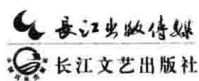 长江出版传媒
长江文艺出版社